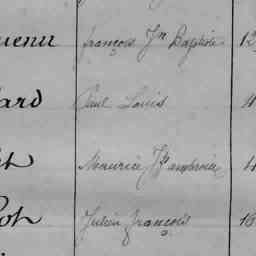 uenu françois Jn Baptiste 12
ard Paul Louis
Maurice Jh ambroise 4
Julien françois 18